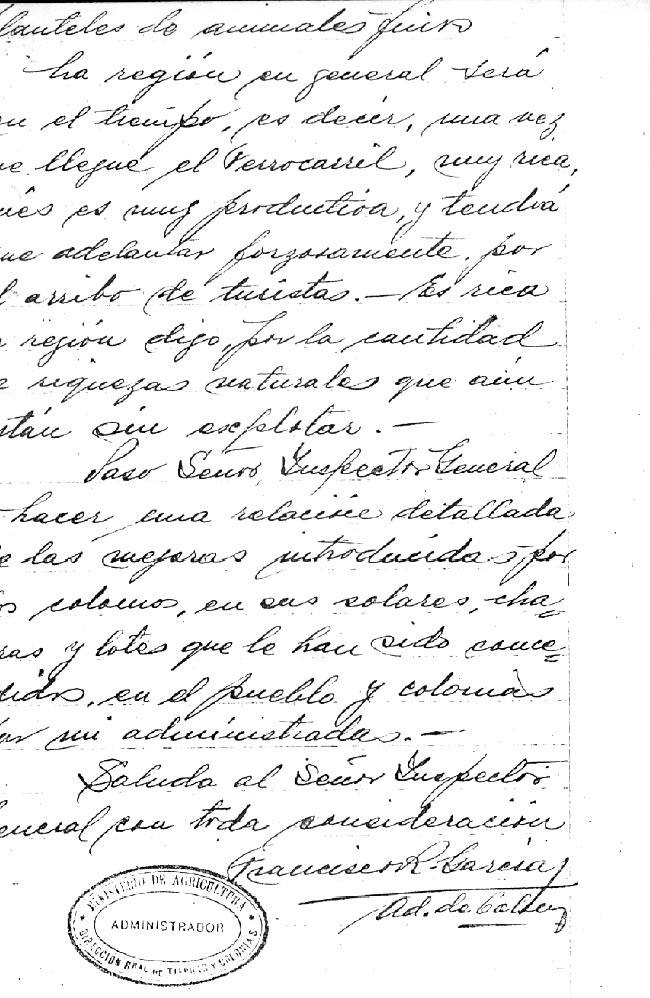 lanteles de animales finos
La región en general será
en el tiempo, es decir, una vez
ue llegue el Ferrocarril, muy rica,
ués es muy productiva, y tendrá
ue adelantar forzosamente, por
l arribo de turistas.—Es rica
a región digo, por la cantidad
e riquezas naturales que aún
stán sin explotar.—
Paso Señor Inspector General
hacer una relación detallada
de las mejoras introducidas por
os colonos, en sus solares, cha=
ras y lotes que le han sido conce=
didos, en el pueblo y colonias
or mi administradas.—
Saluda al Señor Inspector
eneral con toda consideración
Francisco R. Garcia
Ad. de
MINISTERIO DE AGRICULTURA
ADMINISTRADOR
DIRECCIÓN GRAL DE TIERRAS Y COLONIAS